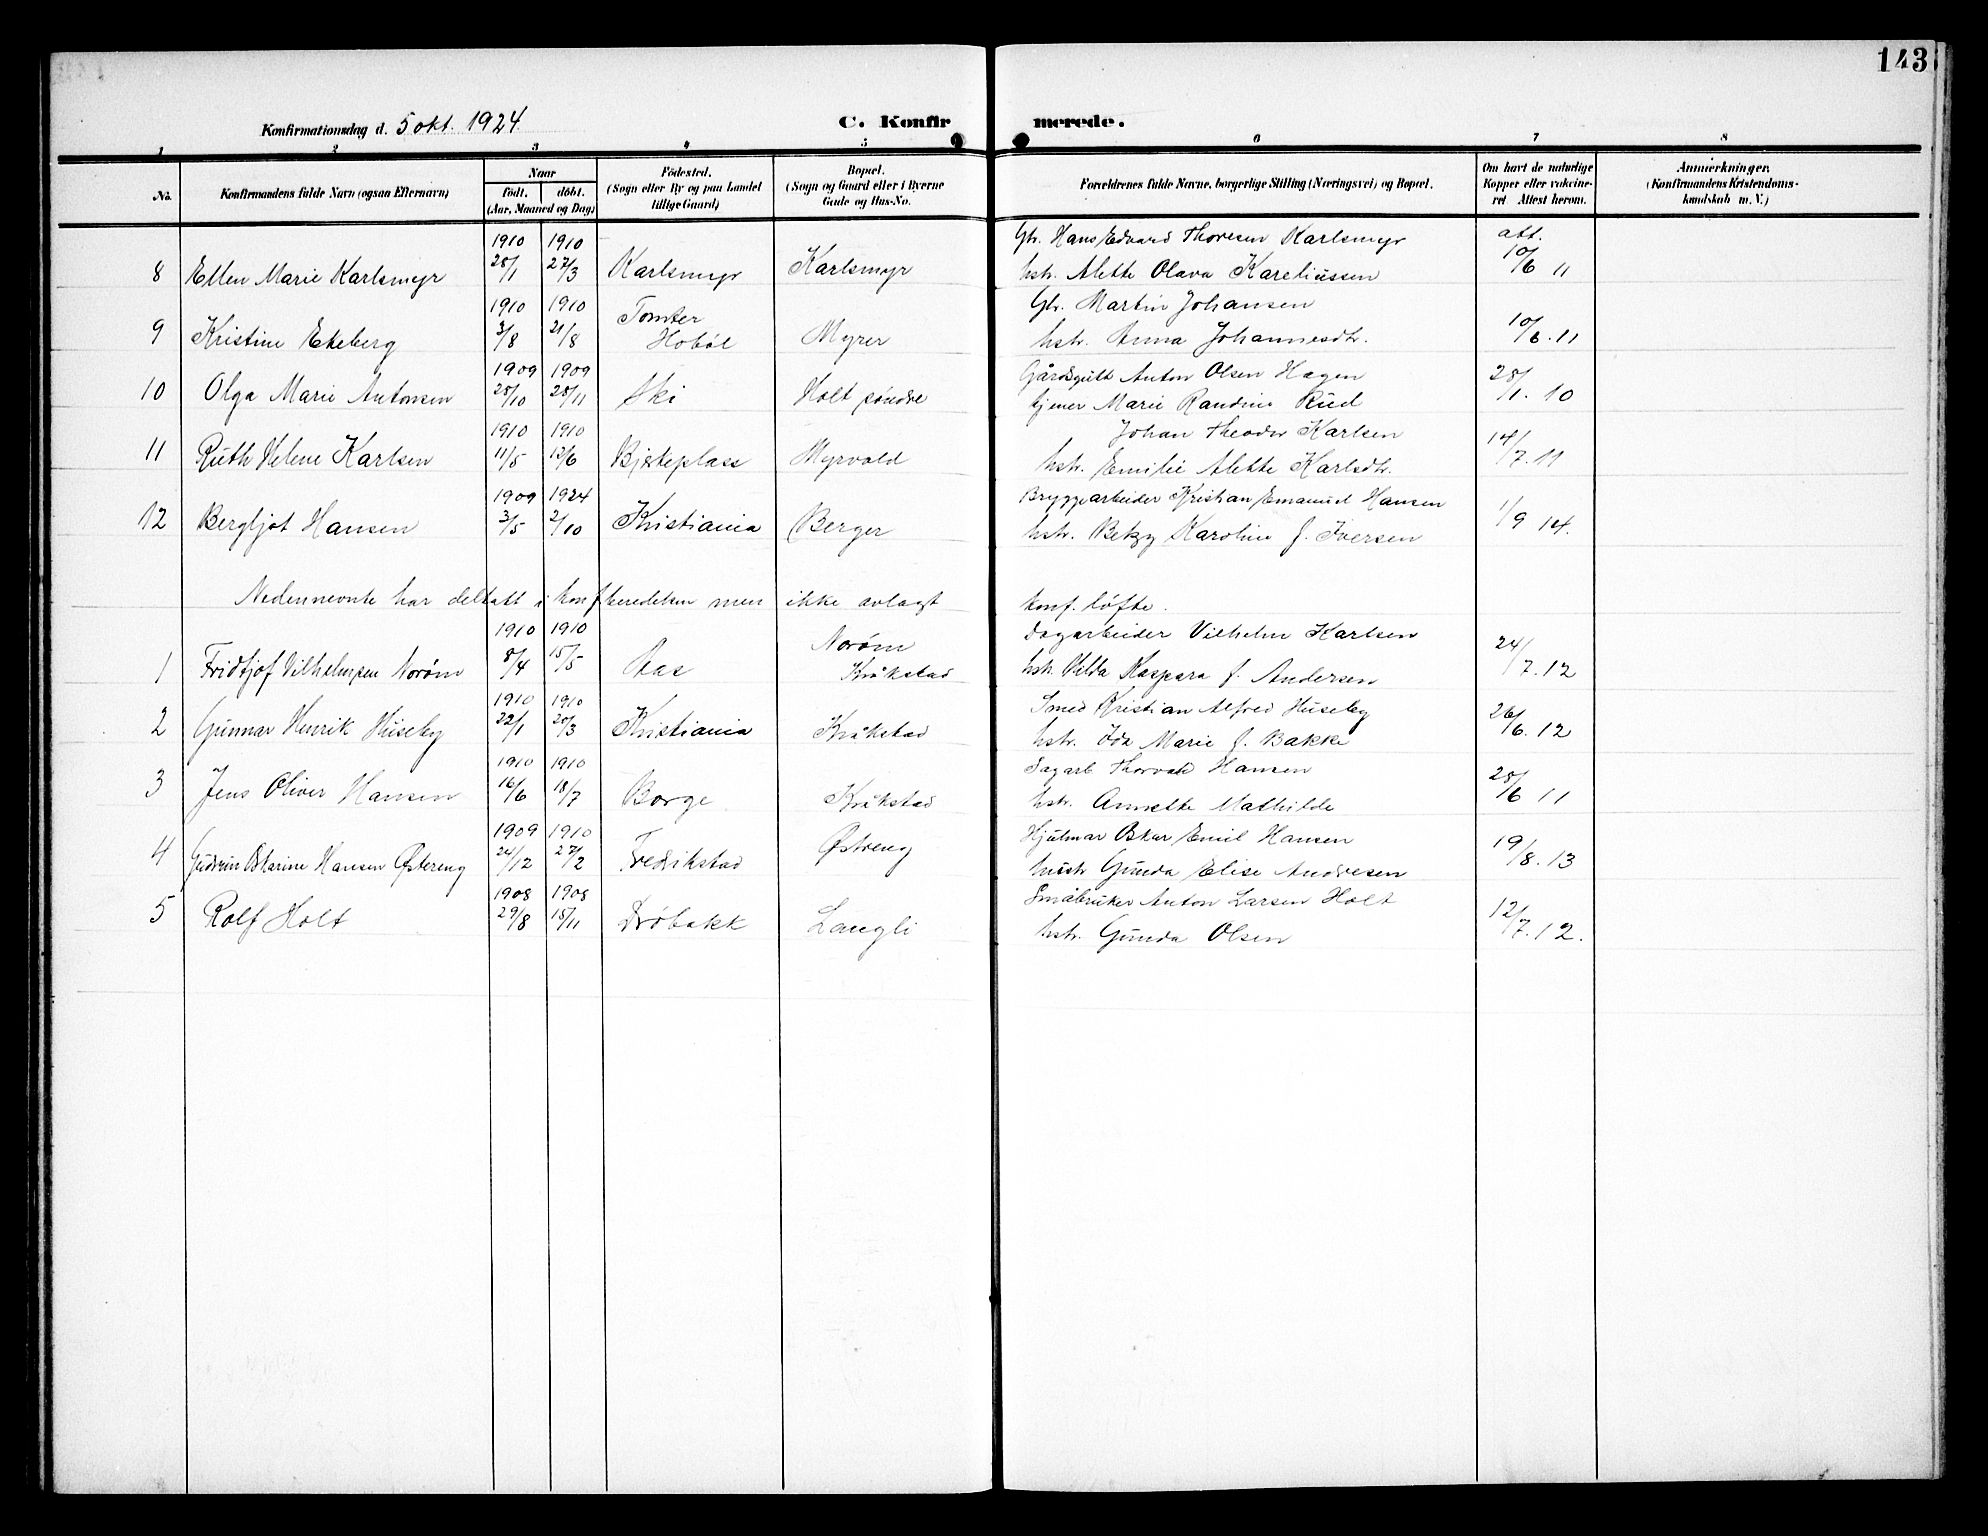 143
Konfirmationsdag d. 5 okt. 1924.
C. Konfirmerede.
1 2 3 4 5 6 7 8
No.
Konfirmandens fulde Navn (ogsaa Efternavn)
Naar
födt. döbt.
(Aar, Maaned og Dag)
Födested.
(Sogn eller By og paa Landet
tillige Gaard)
Bopæl.
(Sogn og Gaard eller i Byerne
Gade og Hus-No.
Forældrenes fulde Navne, borgerlige Stilling (Næringsvei) og Bopæl.
Om havt de naturlige
Kopper eller vakcine-
ret. Attest herom.
Anmærkninger.
(Konfirmandens Kristendoms-
kundskab m. V.)
1910 1910 Gbr. Hans Edvard Thoresen Karlsmyr att.
8 Ellen Marie Karlsmyr 28/1 27/3 Karlsmyr Karlsmyr hstr. Alette Olava Kareliussen 10/6 11
1910 1910 Tomter Gbr. Martin Johansen
9 Kristine Ekeberg 3/8 21/8 Hobøl Myrer hstr. Anna Johannesdtr. 10/6. 11
1909 1909 Gårdsgutt Anton Olsen Hagen
10 Olga Marie Antonsen 28/10 28/11 Ski Holt søndre tjener Marie Randine Rud 28/1. 10
1910 1910 Johan Theodor Karlsen
11 Ruth Helene Karlsen 11/5 12/6 Bjerkeplass Myrvold hstr. Emilie Alette Karlsdtr. 14/7. 11
1909 1924 Bryggearbeider Kristian Emanuel Hansen
12 Bergljot Hansen 3/5 2/10 Kristiania Berger hstr. Betzy Karoline f. Iversen 1/9 14.
Nedennevnte har deltatt i konf beredelsen men ikke avlagt konf. løfte.
1910 1910 Norøm Dagarbeider Vilhelm Karlsen
1 Fridtjof Vilhelmsen Norøm 8/4 15/5 Aas Kråkstad hstr. Hilda Kaspara f. Andersen 24/7. 12
1910 1910 Smed Kristian Alfred Huseby
2 Gunnar Henrik Huseby 22/1 20/3 Kristiania Kråkstad hstr. Ida Marie f. Bakke 26/6. 12
1910 1910 Dagarb Thorvald Hansen
3 Jens Oliver Hansen 16/6 18/7 Borge Kråkstad hstr. Annette Mathilde 28/6 11
1909 1910 Hjalmar Oskar Emil Hansen
4 Gudrun Oskarine Hansen Østereng 24/12 27/2 Fredrikstad Østreng hustr Gunda Elise Andresen 19/8. 13
1908 1908 Småbruker Anton Larsen Holt
5 Rolf Holt 29/8 15/11 Drøbakk Langli hstr. Gunda Olsen 12/7. 12.